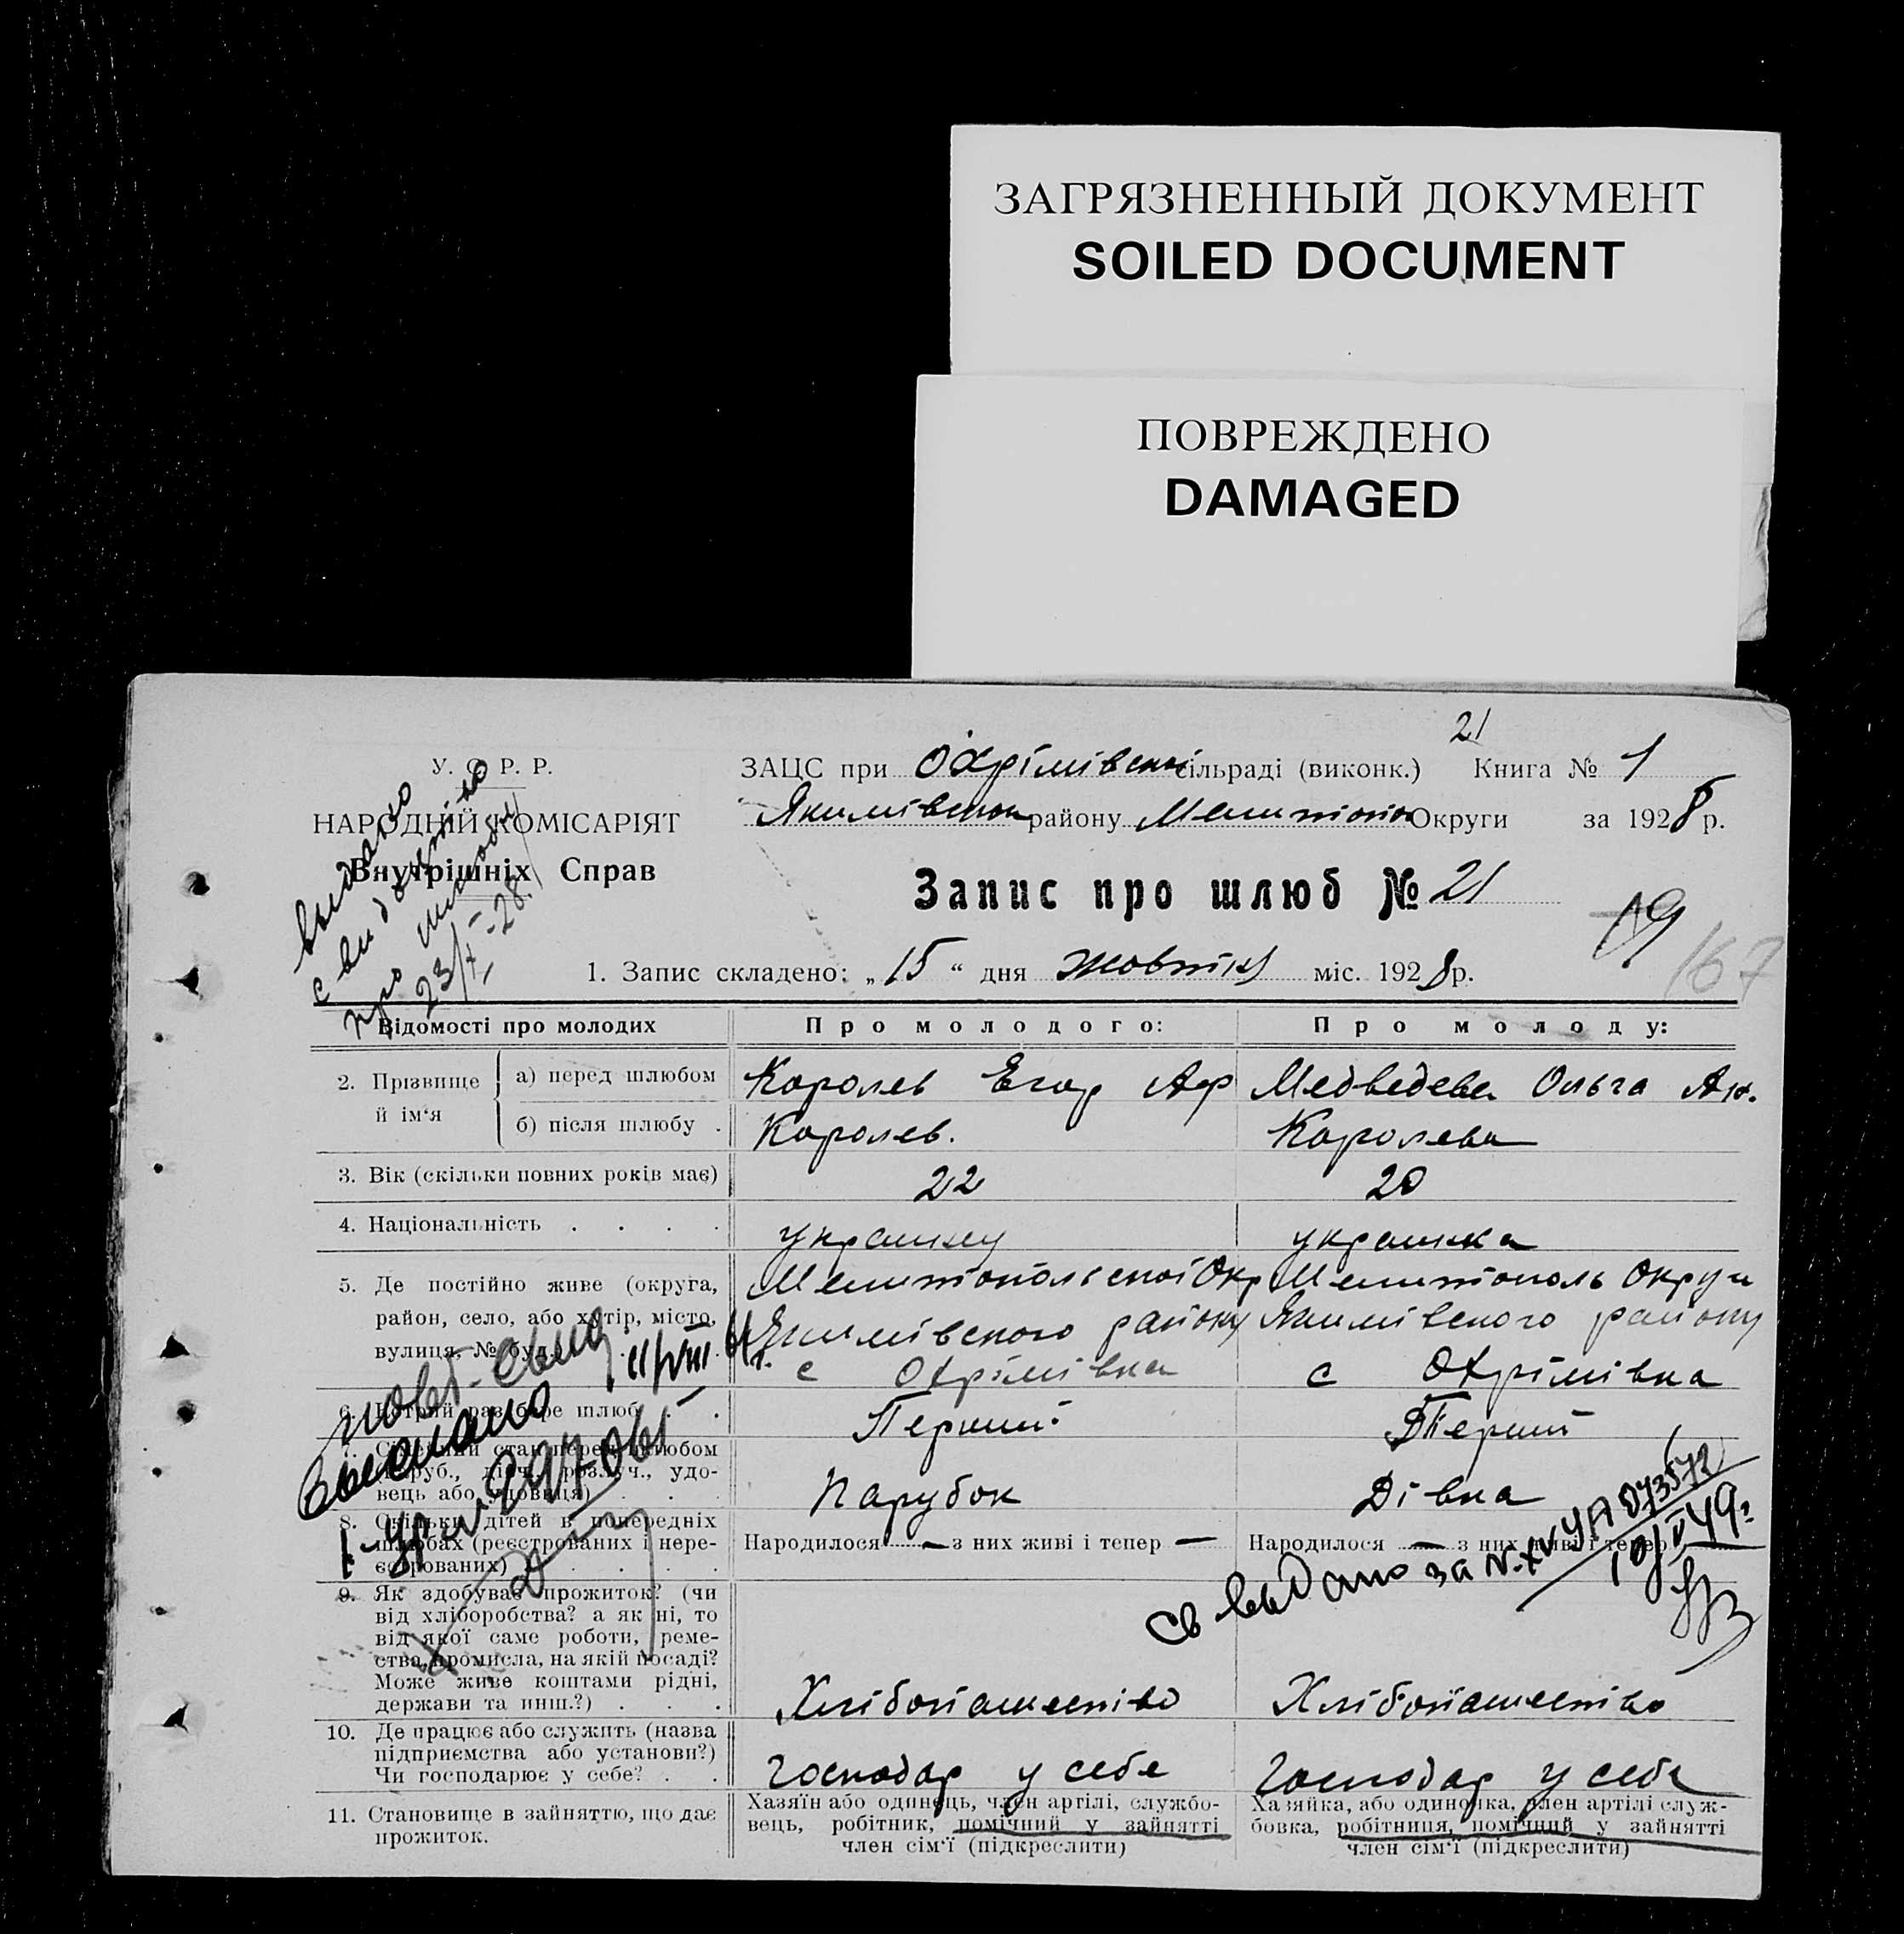 ЗАГРЯЗНЕННЫЙ ДОКУМЕНТ
SOILED DOCUMENT
ПОВРЕЖДЕНО
DAMAGED
21
У. С. Р. Р.
НАРОДНІЙ КОМІСАРІЯТ
Внутрішніх Справ
видано
свидоцтво
про шлюбу
23/X-28.
ЗАЦС при Охрімівськ сільраді (виконк.) Книга № 1
Якимівськ району Мелитополь Округи за 1928 р.
Запис про шлюб № 21
19
167
1. Запис складено: „ 15 “ дня жовтня міс. 1928 р.
Відомості про молодих
Про молодого:
Про молоду:
2. Прізвище й ім‘я
а) перед шлюбом
Королев Егор Аф
Медведева Ольга Ан.
б) після шлюбу .
Королев.
Королева
3. Вік (скільки повних років має)
22
20
4. Національність . . . .
украинец
украинка
5. Де постійно живе (округа,
район, село, або хутір, місто,
вулиця, № буд.
Мелитопольської Окр
Якимівського району
с Охрімівка
Мелитополь Округи
Якимівського району
с Охрімівка
6. Котрий раз бере шлюб . .
Перший
Перший
7. Сімейний стан перед шлюбом
(паруб., дівч., розлуч., удо-
вець або удовиця) . . .
Парубок
Дівка
8. Скільки дітей в попередніх
шлюбах (реєстрованих і нере-
єстрованих) . . . .
Народилося — з них живі і тепер —
Народилося — з них живі і тепер
Повт. свид
выслано
Св выдано за N. XV УА 073572
10/V 49г
9. Як здобуває прожиток? (чи
від хліборобства? а як ні, то
від якої саме роботи, реме-
ства, промисла, на якій посаді?
Може живе коштами рідні,
держави та инш.?) . . .
Хлібопашество
Хлібопашество
10. Де працює або служить (назва
підприємства або установи?)
Чи господарює у себе? . .
Господар у себе
Господар у себе
11. Становище в зайняттю, що дає
прожиток.
Хазяїн або одинець, член артілі, службо-
вець, робітник, помічний у зайнятті
член сім‘ї (підкреслити)
Хазяйка, або одиночка, член артілі служ-
бовка, робітниця, помічний у зайнятті
член сім‘ї (підкреслити)